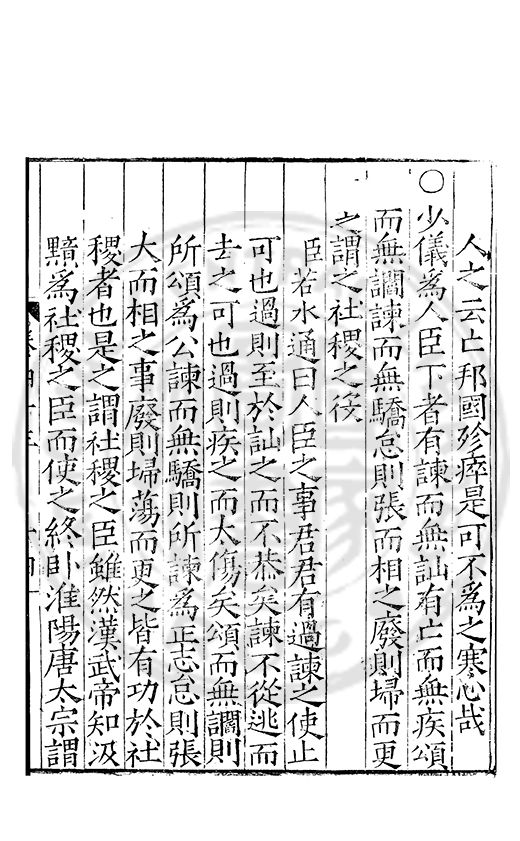 人之云亡邦國殄瘁是可不爲之寒心哉
○少儀爲人臣下者有諫而無訕有亡而無疾頌
而無讇諫而無驕怠則張而相之廢則埽而更
之謂之社稷之役
臣若水通曰人臣之事君君有過諫之使止
可也過則至於訕之而不恭矣諫不從逃而
去之可也過則疾之而太傷矣頌而無讇則
所頌爲公諫而無驕則所諫爲正志怠則張
大而相之事廢則埽蕩而更之皆有功於社
稷者也是之謂社稷之臣雖然漢武帝知汲
黯爲社稷之臣而使之終卧淮陽唐太宗謂